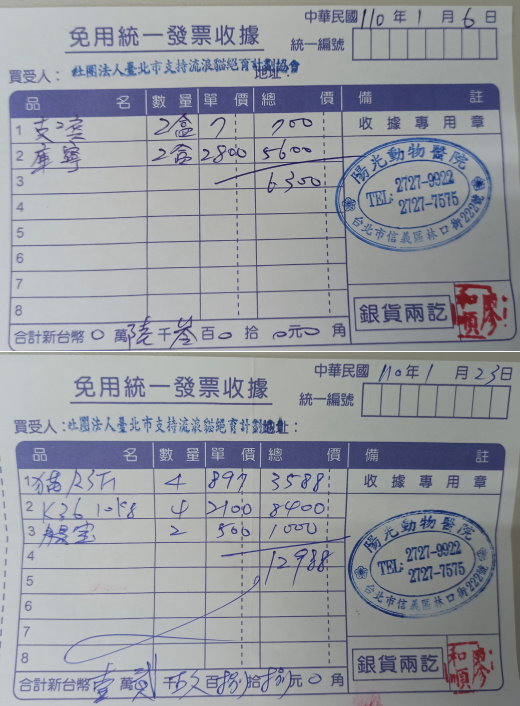 免用統一發票收據
中華民國110年1月6日
統一編號
買受人：社團法人臺北市支持流浪貓絕育計劃協會
地址：
品名 數量 單價 總價 備註
1 2盒 700 收據專用章
2 2盒 2800 5600
3 6300
4
5
6
7
8
陽光動物醫院
TEL: 2727-9922
2727-7575
台北市信義區林口街222號
銀貨兩訖
合計新台幣0萬陸千叁百0拾0元0角
免用統一發票收據
中華民國110年1月23日
統一編號
買受人：社團法人臺北市支持流浪貓絕育計劃
品名 數量 單價 總價 備註
1 4 897 3588 收據專用章
2 K36 4 2100 8400
3 2 500 1000
4 12988
5
6
7
8
陽光動物醫院
TEL: 2727-9922
2727-7575
台北市信義區林口街222號
銀貨兩訖
合計新台幣壹萬貳千玖百捌拾捌元0角